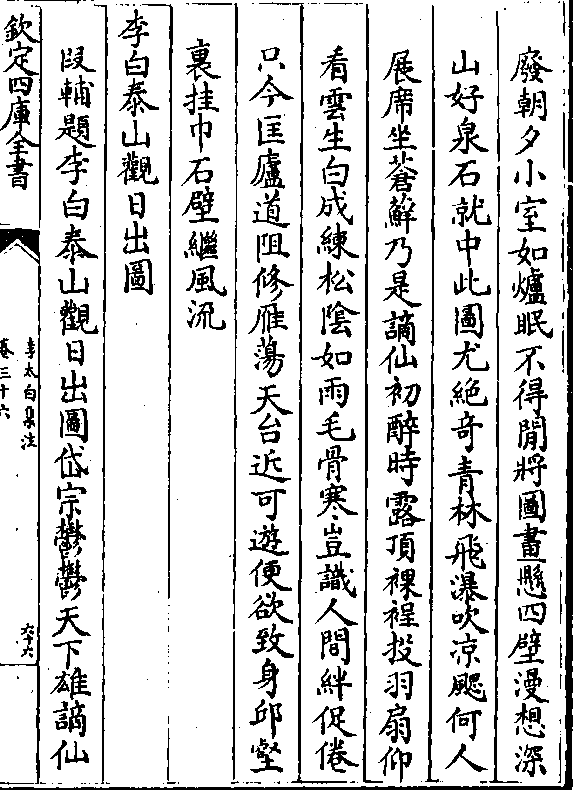 廢朝夕小室如爐眠不得閒將圖畫懸四壁漫想深
山好泉石就中此圖尤絶奇青林飛瀑吹凉颸何人
展席坐蒼蘚乃是謫仙初醉時露頂裸裎投羽扇仰
看雲生白成練松陰如雨毛骨寒豈識人間絆促倦
只今匡廬道阻修雁蕩天台近可遊便欲致身邱壑
裏挂巾石壁繼風流
李白泰山觀日出圖
段輔題李白泰山觀日出圖岱宗鬱鬱天下雄謫仙
欽定四庫全書
李太白集注
卷三十六